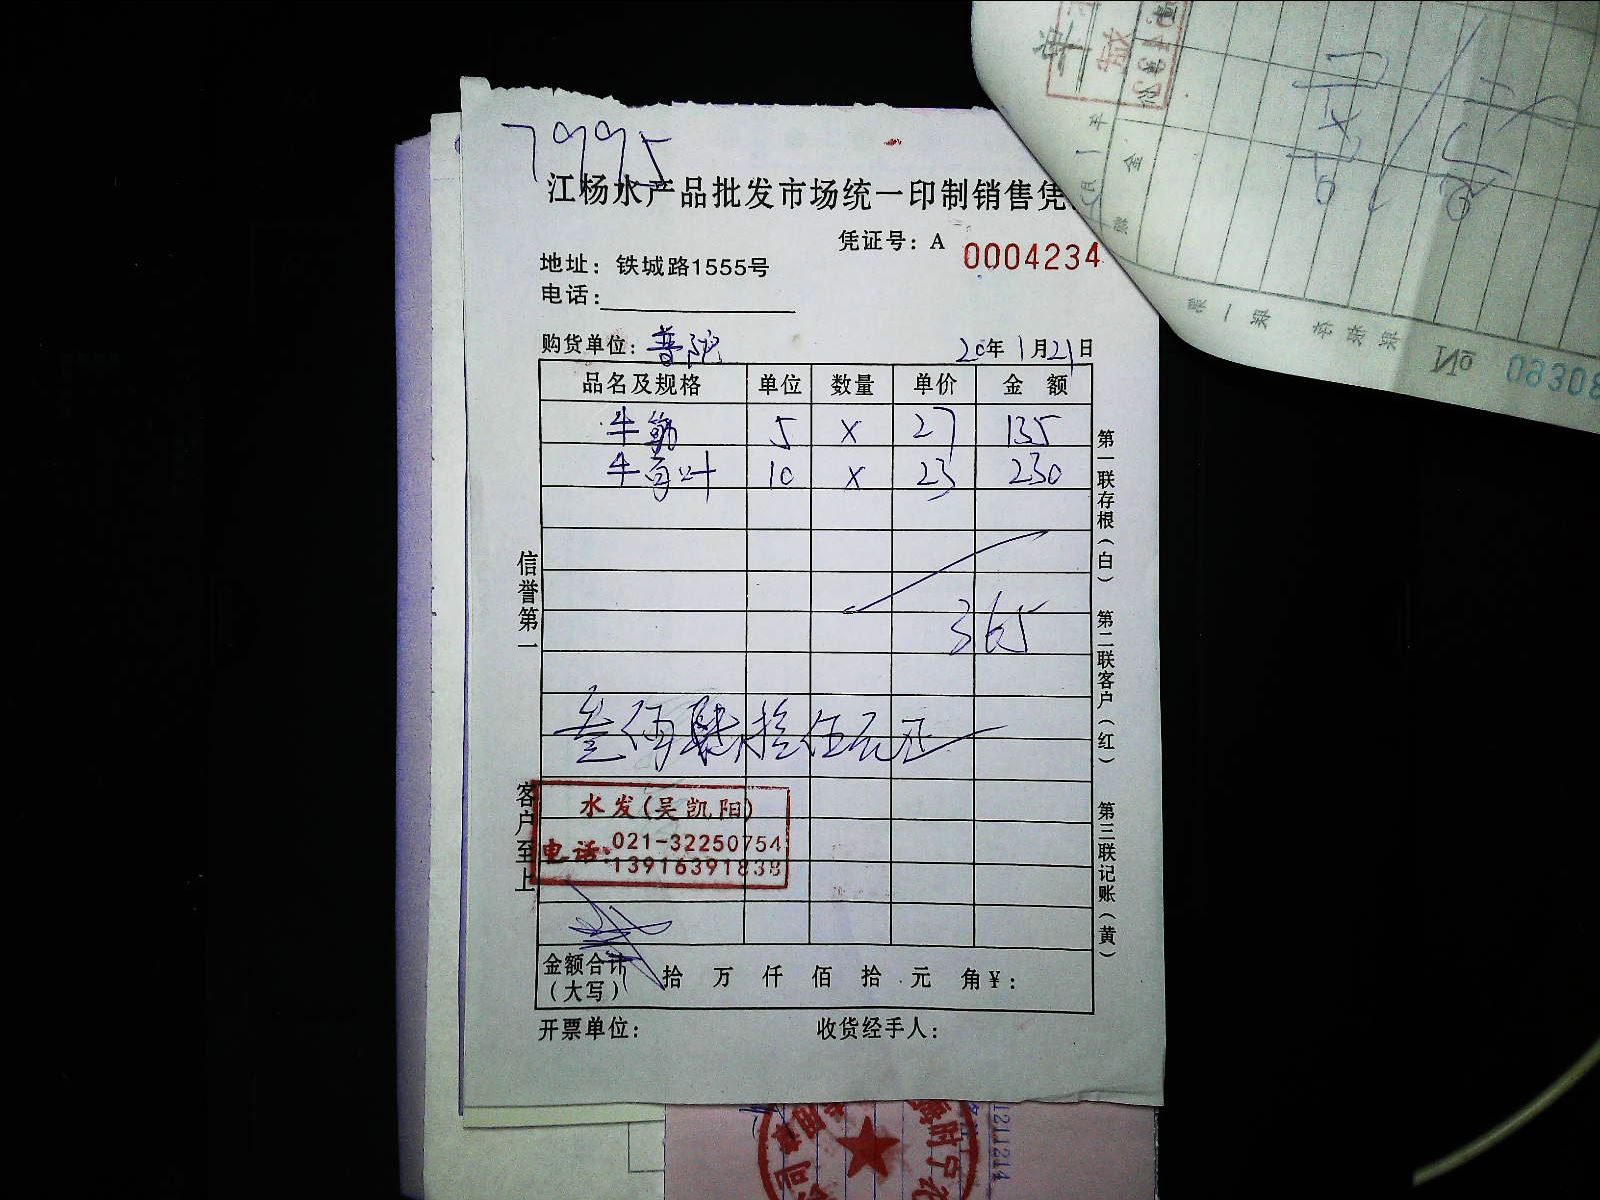 7995
江杨水产品批发市场统一印制销售凭
凭证号：A 0004234
地址：铁城路1555号
电话：
购货单位：普陀 20年1月21日
品名及规格 单位 数量 单价 金 额
牛筋 5 x 27 135
牛百叶 10 x 23 230
365
叁佰陆拾伍元正
水发(吴凯阳)
电话：021-32250754
13916391838
金额合计（大写） 拾 万 仟 佰 拾 元 角￥：
开票单位： 收货经手人：
信誉第一
客户至上
第一联存根（白） 第二联客户（红） 第三联记账（黄）
№ 08308
1211214